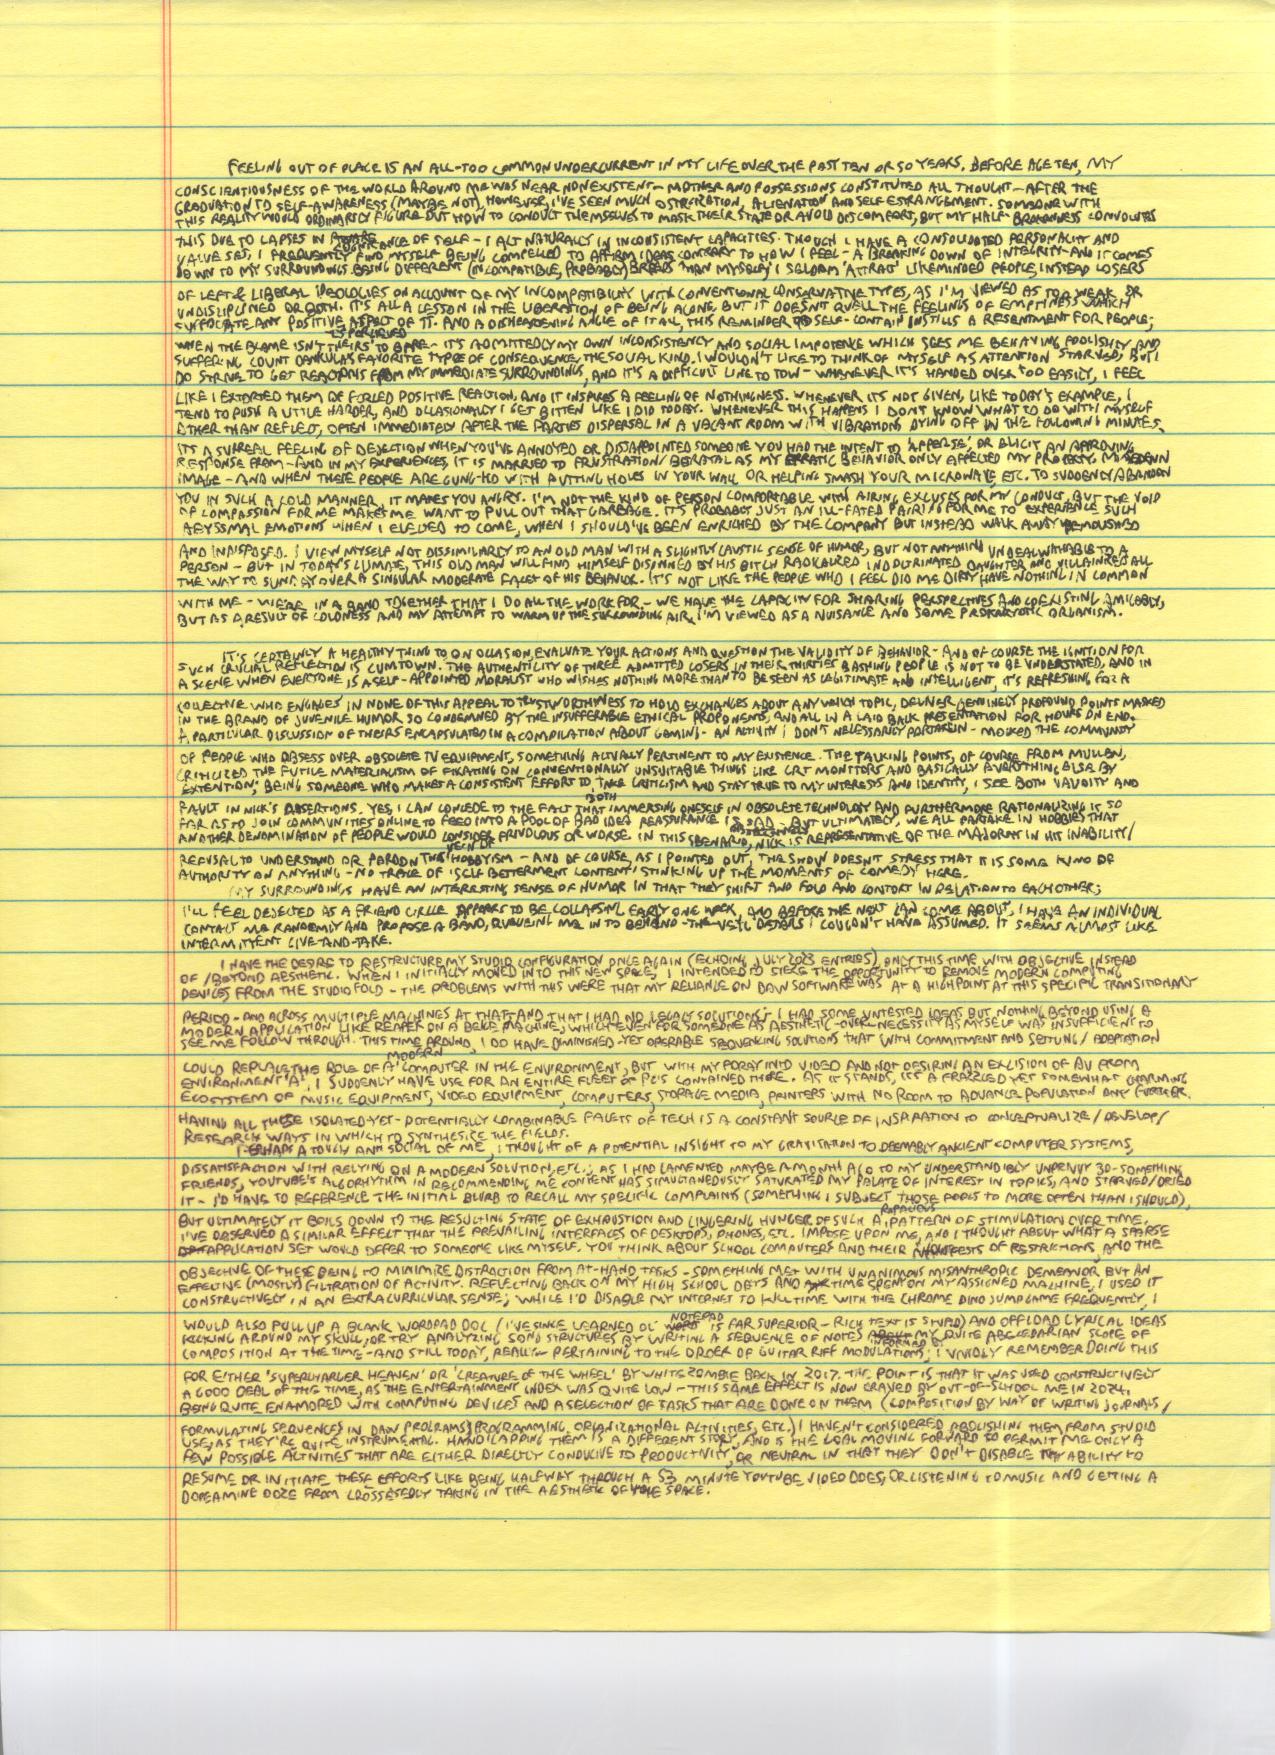 FEELING OUT OF PLACE IS AN ALL-TOO COMMON UNDERCURRENT IN MY LIFE OVER THE PAST TEN OR SO YEARS. BEFORE AGE TEN, MY
CONSCIENTIOUSNESS OF THE WORLD AROUND ME WAS NEAR NONEXISTENT - MOTHER AND POSSESSIONS CONSTITUTED ALL THOUGHT - AFTER THE
GRADUATION TO SELF-AWARENESS (MAYBE NOT), HOWEVER, I'VE SEEN MUCH OSTRICIZATION, ALIENATION AND SELF ESTRANGEMENT. SOMEONE WITH
THIS REALITY WOULD ORDINARILY FIGURE OUT HOW TO CONDUCT THEMSELVES TO MASK THEIR STATE OR AVOID DISCOMFORT, BUT MY HALF-BROKENNESS CONVOLUTES
THIS DUE TO LAPSES IN COGNIZANCE OF SELF - I ACT NATURALLY IN INCONSISTENT CAPACITIES. THOUGH I HAVE A CONSOLIDATED PERSONALITY AND
VALUE SET, I FREQUENTLY FIND MYSELF BEING COMPELLED TO AFFIRM IDEAS CONTRARY TO HOW I FEEL - A BREAKING DOWN OF INTEGRITY - AND IT COMES
DOWN TO MY SURROUNDINGS BEING DIFFERENT (INCOMPATIBLE, PROBABLY) BREEDS THAN MYSELF; I SELDOM 'ATTRACT' LIKEMINDED PEOPLE, INSTEAD LOSERS
OF LEFT & LIBERAL IDEOLOGIES ON ACCOUNT OF MY INCOMPATIBILITY WITH CONVENTIONAL CONSERVATIVE TYPES, AS I'M VIEWED AS TOO WEAK OR
UNDISCIPLINED OR BOTH. IT'S ALL A LESSON IN THE LIBERATION OF BEING ALONE, BUT IT DOESN'T QUELL THE FEELINGS OF EMPTINESS WHICH
SUFFOCATE ANY POSITIVE ASPECT OF IT. AND A DISHEARTENING ANGLE OF IT ALL, THIS REMINDER TO SELF-CONTAIN INSTILLS A RESENTMENT FOR PEOPLE;
WHEN THE BLAME ISN'T THEIRS TO BARE - IT'S ADMITTEDLY MY OWN INCONSISTENCY AND SOCIAL IMPOTENCE WHICH SEES ME BEHAVING FOOLISHLY AND
SUFFERING COUNT DANKULA'S FAVORITE TYPE OF CONSEQUENCE, THE SOCIAL KIND. I WOULDN'T LIKE TO THINK OF MYSELF AS ATTENTION STARVED, BUT I
DO STRIVE TO GET REACTIONS FROM MY IMMEDIATE SURROUNDINGS, AND IT'S A DIFFICULT LINE TO TOW - WHENEVER IT'S HANDED OVER TOO EASILY, I FEEL
LIKE I EXTORTED THEM OF FORCED POSITIVE REACTION, AND IT INSPIRES A FEELING OF NOTHINGNESS. WHENEVER IT'S NOT GIVEN, LIKE TODAY'S EXAMPLE, I
TEND TO PUSH A LITTLE HARDER, AND OCCASIONALLY I GET BITTEN LIKE I DID TODAY. WHENEVER THIS HAPPENS I DON'T KNOW WHAT TO DO WITH MYSELF
OTHER THAN REFLECT, OFTEN IMMEDIATELY AFTER THE PARTIES DISPERSAL IN A VACANT ROOM WITH VIBRATIONS DYING OFF IN THE FOLLOWING MINUTES.
IT'S A SURREAL FEELING OF DEJECTION WHEN YOU'VE ANNOYED OR DISSAPOINTED SOMEONE YOU HAD THE INTENT TO 'APPEASE' OR ELICIT AN APPROVING
RESPONSE FROM - AND IN MY EXPERIENCES, IT IS MARRIED TO FRUSTRATION/BETRAYAL AS MY ERRATIC BEHAVIOR ONLY AFFECTED MY PROPERTY, MY OWN
IMAGE - AND WHEN THESE PEOPLE ARE GUNG-HO WITH PUTTING HOLES IN YOUR WALL OR HELPING SMASH YOUR MICROWAVE, ETC. TO SUDDENLY ABANDON
YOU IN SUCH A COLD MANNER, IT MAKES YOU ANGRY. I'M NOT THE KIND OF PERSON COMFORTABLE WITH AIRING EXCUSES FOR MY CONDUCT, BUT THE VOID
OF COMPASSION FOR ME MAKES ME WANT TO PULL OUT THAT GARBAGE. IT'S PROBABLY JUST AN ILL-FATED PAIRING FOR ME TO EXPERIENCE SUCH
ABYSSMAL EMOTIONS WHEN I ELECTED TO COME, WHEN I SHOULD'VE BEEN ENRICHED BY THE COMPANY BUT INSTEAD WALK AWAY DEMOLISHED
AND INDISPOSED. I VIEW MYSELF NOT DISSIMILARLY TO AN OLD MAN WITH A SLIGHTLY CAUSTIC SENSE OF HUMOR, BUT NOT ANYTHING UNDEALWITHABLE TO A
PERSON - BUT IN TODAY'S CLIMATE, THIS OLD MAN WILL FIND HIMSELF DISOWNED BY HIS BITCH RADICALIZED INDOCTRINATED DAUGHTER AND VILLAINIZED ALL
THE WAY TO SUNDAY OVER A SINGULAR MODERATE FACET OF HIS BEHAVIOR. IT'S NOT LIKE THE PEOPLE WHO I FEEL DID ME DIRTY HAVE NOTHING IN COMMON
WITH ME - WE'RE IN A BAND TOGETHER THAT I DO ALL THE WORK FOR - WE HAVE THE CAPACITY FOR SHARING PERSPECTIVES AND COEXISTING AMICABLY,
BUT AS A RESULT OF COLDNESS AND MY ATTEMPT TO WARM UP THE SURROUNDING AIR, I'M VIEWED AS A NUISANCE AND SOME PROKARYOTIC ORGANISM.
IT'S CERTAINLY A HEALTHY THING TO ON OCCASION, EVALUATE YOUR ACTIONS AND QUESTION THE VALIDITY OF BEHAVIOR - AND OF COURSE THE IGNITION FOR
SUCH CRUCIAL REFLECTION IS CUMTOWN. THE AUTHENTICITY OF THREE ADMITTED LOSERS IN THEIR THIRTIES BASHING PEOPLE IS NOT TO BE UNDERSTATED, AND IN
A SCENE WHEN EVERYONE IS A SELF-APPOINTED MORALIST WHO WISHES NOTHING MORE THAN TO BE SEEN AS LEGITIMATE AND INTELLIGENT, IT'S REFRESHING FOR A
COLLECTIVE WHO ENGAGES IN NONE OF THIS APPEAL TO TRUSTWORTHINESS TO HOLD EXCHANGES ABOUT ANY WHICH TOPIC, DELIVER GENUINELY PROFOUND POINTS MASKED
IN THE BRAND OF JUVENILE HUMOR SO CONDEMNED BY THE INSUFFERABLE ETHICAL PROPONENTS, AND ALL IN A LAID BACK PRESENTATION FOR HOURS ON END.
A PARTICULAR DISCUSSION OF THEIRS ENCAPSULATED IN A COMPILATION ABOUT GAMING - AN ACTIVITY I DON'T NECESSARILY PARTAKE IN - MOCKED THE COMMUNITY
OF PEOPLE WHO OBSESS OVER OBSOLETE TV EQUIPMENT, SOMETHING ACTUALLY PERTINENT TO MY EXISTENCE. THE TALKING POINTS, OF COURSE FROM MULLEN,
CRITICIZED THE FUTILE MATERIALISM OF FIXATING ON CONVENTIONALLY UNSUITABLE THINGS LIKE CRT MONITORS AND BASICALLY EVERYTHING ELSE BY
EXTENTION; BEING SOMEONE WHO MAKES A CONSISTENT EFFORT TO TAKE CRITICISM AND STAY TRUE TO MY INTERESTS AND IDENTITY, I SEE BOTH VALIDITY AND
FAULT IN NICK'S ASSERTIONS. YES, I CAN CONCEDE TO THE FACT THAT BOTH IMMERSING ONESELF IN OBSOLETE TECHNOLOGY AND FURTHERMORE RATIONALIZING IT SO
FAR AS TO JOIN COMMUNITIES ONLINE TO FEED INTO A POOL OF BAD IDEA REASSURANCE IS SAD - BUT ULTIMATELY, WE ALL PARTAKE IN HOBBIES THAT
ANOTHER DENOMINATION OF PEOPLE WOULD CONSIDER FRIVOLOUS OR WORSE. IN THIS SCENARIO, NICK IS REPRESENTATIVE OF THE MAJORITY IN HIS INABILITY/
REFUSAL TO UNDERSTAND OR PARDON THIS HOBBYISM - AND OF COURSE, AS I POINTED OUT, THE SHOW DOESN'T STRESS THAT IT IS SOME KIND OF
AUTHORITY ON ANYTHING - NO TRACE OF 'SELF BETTERMENT CONTENT' STINKING UP THE MOMENTS OF COMEDY HERE.
MY SURROUNDINGS HAVE AN INTERESTING SENSE OF HUMOR IN THAT THEY SHIFT AND FOLD AND CONTORT IN RELATION TO EACHOTHER;
I'LL FEEL DEJECTED AS A FRIEND CIRCLE APPEARS TO BE COLLAPSING EARLY ONE WEEK, AND BEFORE THE NEXT CAN COME ABOUT, I HAVE AN INDIVIDUAL
CONTACT ME RANDOMLY AND PROPOSE A BAND, QUEUEING ME IN TO BEHIND-THE-VEIL DETAILS I COULDN'T HAVE ASSUMED. IT SEEMS ALMOST LIKE
INTERMITTENT GIVE-AND-TAKE.
I HAVE THE DESIRE TO RESTRUCTURE MY STUDIO CONFIGURATION ONCE AGAIN (ECHOING JULY 2023 ENTRIES), ONLY THIS TIME WITH OBJECTIVE INSTEAD
OF/BEYOND AESTHETIC. WHEN I INITIALLY MOVED INTO THIS NEW SPACE, I INTENDED TO SIEZE THE OPPORTUNITY TO REMOVE MODERN COMPUTING
DEVICES FROM THE STUDIO FOLD - THE PROBLEMS WITH THIS WERE THAT MY RELIANCE ON DAW SOFTWARE WAS AT A HIGHPOINT AT THIS SPECIFIC TRANSITIONARY
PERIOD - AND ACROSS MULTIPLE MACHINES AT THAT - AND THAT I HAD NO LEGACY SOLUTIONS; I HAD SOME UNTESTED IDEAS BUT NOTHING BEYOND USING A
MODERN APPLICATION LIKE REAPER ON A BEIGE MACHINE, WHICH EVEN FOR SOMEONE AS AESTHETIC-OVER-NECESSITY AS MYSELF WAS INSUFFICIENT TO
SEE ME FOLLOW THROUGH. THIS TIME AROUND, I DO HAVE DIMINISHED-YET OPERABLE SEQUENCING SOLUTIONS THAT WITH COMMITMENT AND SETTING/ADAPTATION
COULD REPLACE THE ROLE OF A MODERN COMPUTER IN THE ENVIRONMENT, BUT WITH MY FORAY INTO VIDEO AND NOT DESIRING AN EXCISION OF AV FROM
ENVIRONMENT 'A', I SUDDENLY HAVE USE FOR AN ENTIRE FLEET OF PC'S CONTAINED THERE. AS IT STANDS, IT'S A FRAZZLED YET SOMEWHAT CHARMING
ECOSYSTEM OF MUSIC EQUIPMENT, VIDEO EQUIPMENT, COMPUTERS, STORAGE MEDIA, PRINTERS WITH NO ROOM TO ADVANCE POPULATION ANY FURTHER.
HAVING ALL THESE ISOLATED-YET-POTENTIALLY COMBINABLE FACETS OF TECH IS A CONSTANT SOURCE OF INSPIRATION TO CONCEPTUALIZE/DEVELOP/
RESEARCH WAYS IN WHICH TO SYNTHESIZE THE FIELDS.
PERHAPS A TOUCH ANTI SOCIAL OF ME, I THOUGHT OF A POTENTIAL INSIGHT TO MY GRAVITATION TO DEEMABLY ANCIENT COMPUTER SYSTEMS,
DISSATISFACTION WITH RELYING ON A MODERN SOLUTION, ETC.; AS I HAD LAMENTED MAYBE A MONTH AGO TO MY UNDERSTANDIBLY UNPRIVVY 30-SOMETHING
FRIENDS, YOUTUBE'S ALGORHYTHM IN RECOMMENDING ME CONTENT HAS SIMULTANEOUSLY SATURATED MY PALATE OF INTEREST IN TOPICS, AND STARVED/DRIED
IT - I'D HAVE TO REFERENCE THE INITIAL BLURB TO RECALL MY SPECIFIC COMPLAINTS (SOMETHING I SUBJECT THOSE FOOLS TO MORE OFTEN THAN I SHOULD),
BUT ULTIMATELY IT BOILS DOWN TO THE RESULTING STATE OF EXHAUSTION AND LINGERING HUNGER OF SUCH A RAPACIOUS PATTERN OF STIMULATION OVER TIME.
I'VE OBSERVED A SIMILAR EFFECT THAT THE PREVAILING INTERFACES OF DESKTOPS, PHONES, ETC. IMPOSE UPON ME, AND I THOUGHT ABOUT WHAT A SPARSE
APPLICATION SET WOULD OFFER TO SOMEONE LIKE MYSELF. YOU THINK ABOUT SCHOOL COMPUTERS AND THEIR MANIFESTS OF RESTRICTIONS, AND THE
OBJECTIVE OF THESE BEING TO MINIMIZE DISTRACTION FROM AT-HAND TASKS - SOMETHING MET WITH UNANIMOUS MISANTHROPIC DEMEANOR, BUT AN
EFFECTIVE (MOSTLY) FILTRATION OF ACTIVITY. REFLECTING BACK ON MY HIGH SCHOOL DAYS AND TIME SPENT ON MY ASSIGNED MACHINE, I USED IT
CONSTRUCTIVELY IN AN EXTRACURRICULAR SENSE; WHILE I'D DISABLE MY INTERNET TO KILL TIME WITH THE CHROME DINO JUMP GAME FREQUENTLY, I
WOULD ALSO PULL UP A BLANK WORDPAD DOC (I'VE SINCE LEARNED OL' NOTEPAD IS FAR SUPERIOR - RICH TEXT IS STUPID) AND OFFLOAD LYRICAL IDEAS
KICKING AROUND MY SKULL, OR TRY ANALYZING SONG STRUCTURES BY WRITING A SEQUENCE OF NOTES INFORMED BY MY QUITE ABCEDARIAN SCOPE OF
COMPOSITION AT THE TIME - AND STILL TODAY, REALLY - PERTAINING TO THE ORDER OF GUITAR RIFF MODULATIONS; I VIVIDLY REMEMBER DOING THIS
FOR EITHER 'SUPERCHARGER HEAVEN' OR 'CREATURE OF THE WHEEL' BY WHITE ZOMBIE BACK IN 2017. THE POINT IS THAT IT WAS USED CONSTRUCTIVELY
A GOOD DEAL OF THE TIME, AS THE ENTERTAINMENT INDEX WAS QUITE LOW - THIS SAME EFFECT IS NOW CRAVED BY OUT-OF-SCHOOL ME IN 2024.
BEING QUITE ENAMORED WITH COMPUTING DEVICES AND A SELECTION OF TASKS THAT ARE DONE ON THEM (COMPOSITION BY WAY OF WRITING JOURNALS/
FORMULATING SEQUENCES IN DAW PROGRAMS, PROGRAMMING, ORGANIZATIONAL ACTIVITIES, ETC.) I HAVEN'T CONSIDERED ABOLISHING THEM FROM STUDIO
USE, AS THEY'RE QUITE INSTRUMENTAL. HANDICAPPING THEM IS A DIFFERENT STORY, AND IS THE GOAL MOVING FORWARD TO PERMIT ME ONLY A
FEW POSSIBLE ACTIVITIES THAT ARE EITHER DIRECTLY CONDUCIVE TO PRODUCTIVITY, OR NEUTRAL IN THAT THEY DON'T DISABLE MY ABILITY TO
RESUME OR INITIATE THESE EFFORTS LIKE BEING HALFWAY THROUGH A 53 MINUTE YOUTUBE VIDEO DOES, OR LISTENING TO MUSIC AND GETTING A
DOPEAMINE DOZE FROM CROSSEYEDLY TAKING IN THE AESTHETIC OF THE SPACE.